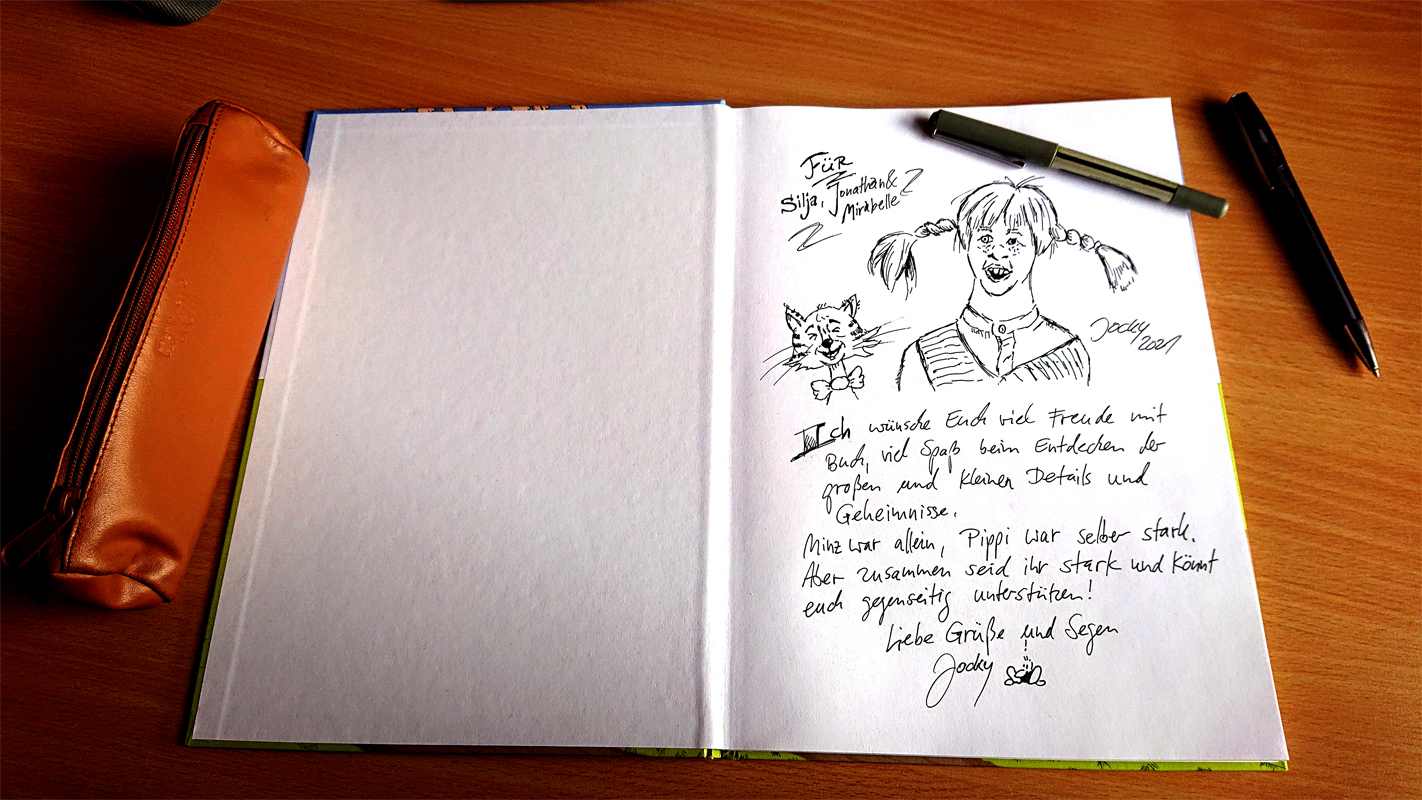 FÜR
Silja, Jonathan &
Mirabelle
Jocky
2021
Ich wünsche Euch viel Freude mit
Buch, viel Spaß beim Entdecken der
großen und kleinen Details und
Geheimnisse.
Minz war allein, Pippi war selber stark.
Aber zusammen seid ihr stark und könnt
euch gegenseitig unterstützen!
Liebe Grüße und Segen
Jocky